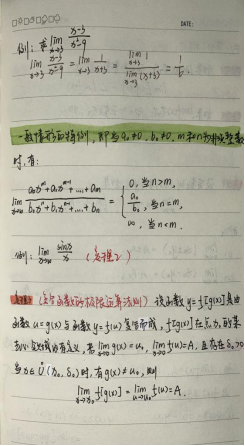 DATE:
例：求 lim_{x→3} (x-3)/(x²-9)
lim_{x→3} (x-3)/(x²-9) = lim_{x→3} 1/(x+3) = lim_{x→3} 1 / lim_{x→3} (x+3) = 1/6.
一般情形而特例，即当a₀≠0，b₀≠0，m和n为非负整数
时，有：
lim_{x→∞} (a₀xᵐ+a₁xᵐ⁻¹+…+aₘ)/(b₀xⁿ+b₁xⁿ⁻¹+…+bₙ) = { 0, 当n>m,
a₀/b₀, 当n=m,
∞, 当n<m.
例：lim_{x→∞} sinx/x （定理2）
（复合函数的极限运算法则）设函数y=f[g(x)]是由
函数u=g(x)与函数y=f(u)复合而成，f[g(x)]在x₀的某
去心邻域内有定义，若lim_{x→x₀} g(x)=u₀, lim_{u→u₀} f(u)=A, 且存在δ₀>0
当x∈Ů(x₀, δ₀)时，有g(x)≠u₀，则
lim_{x→x₀} f[g(x)] = lim_{u→u₀} f(u)=A.